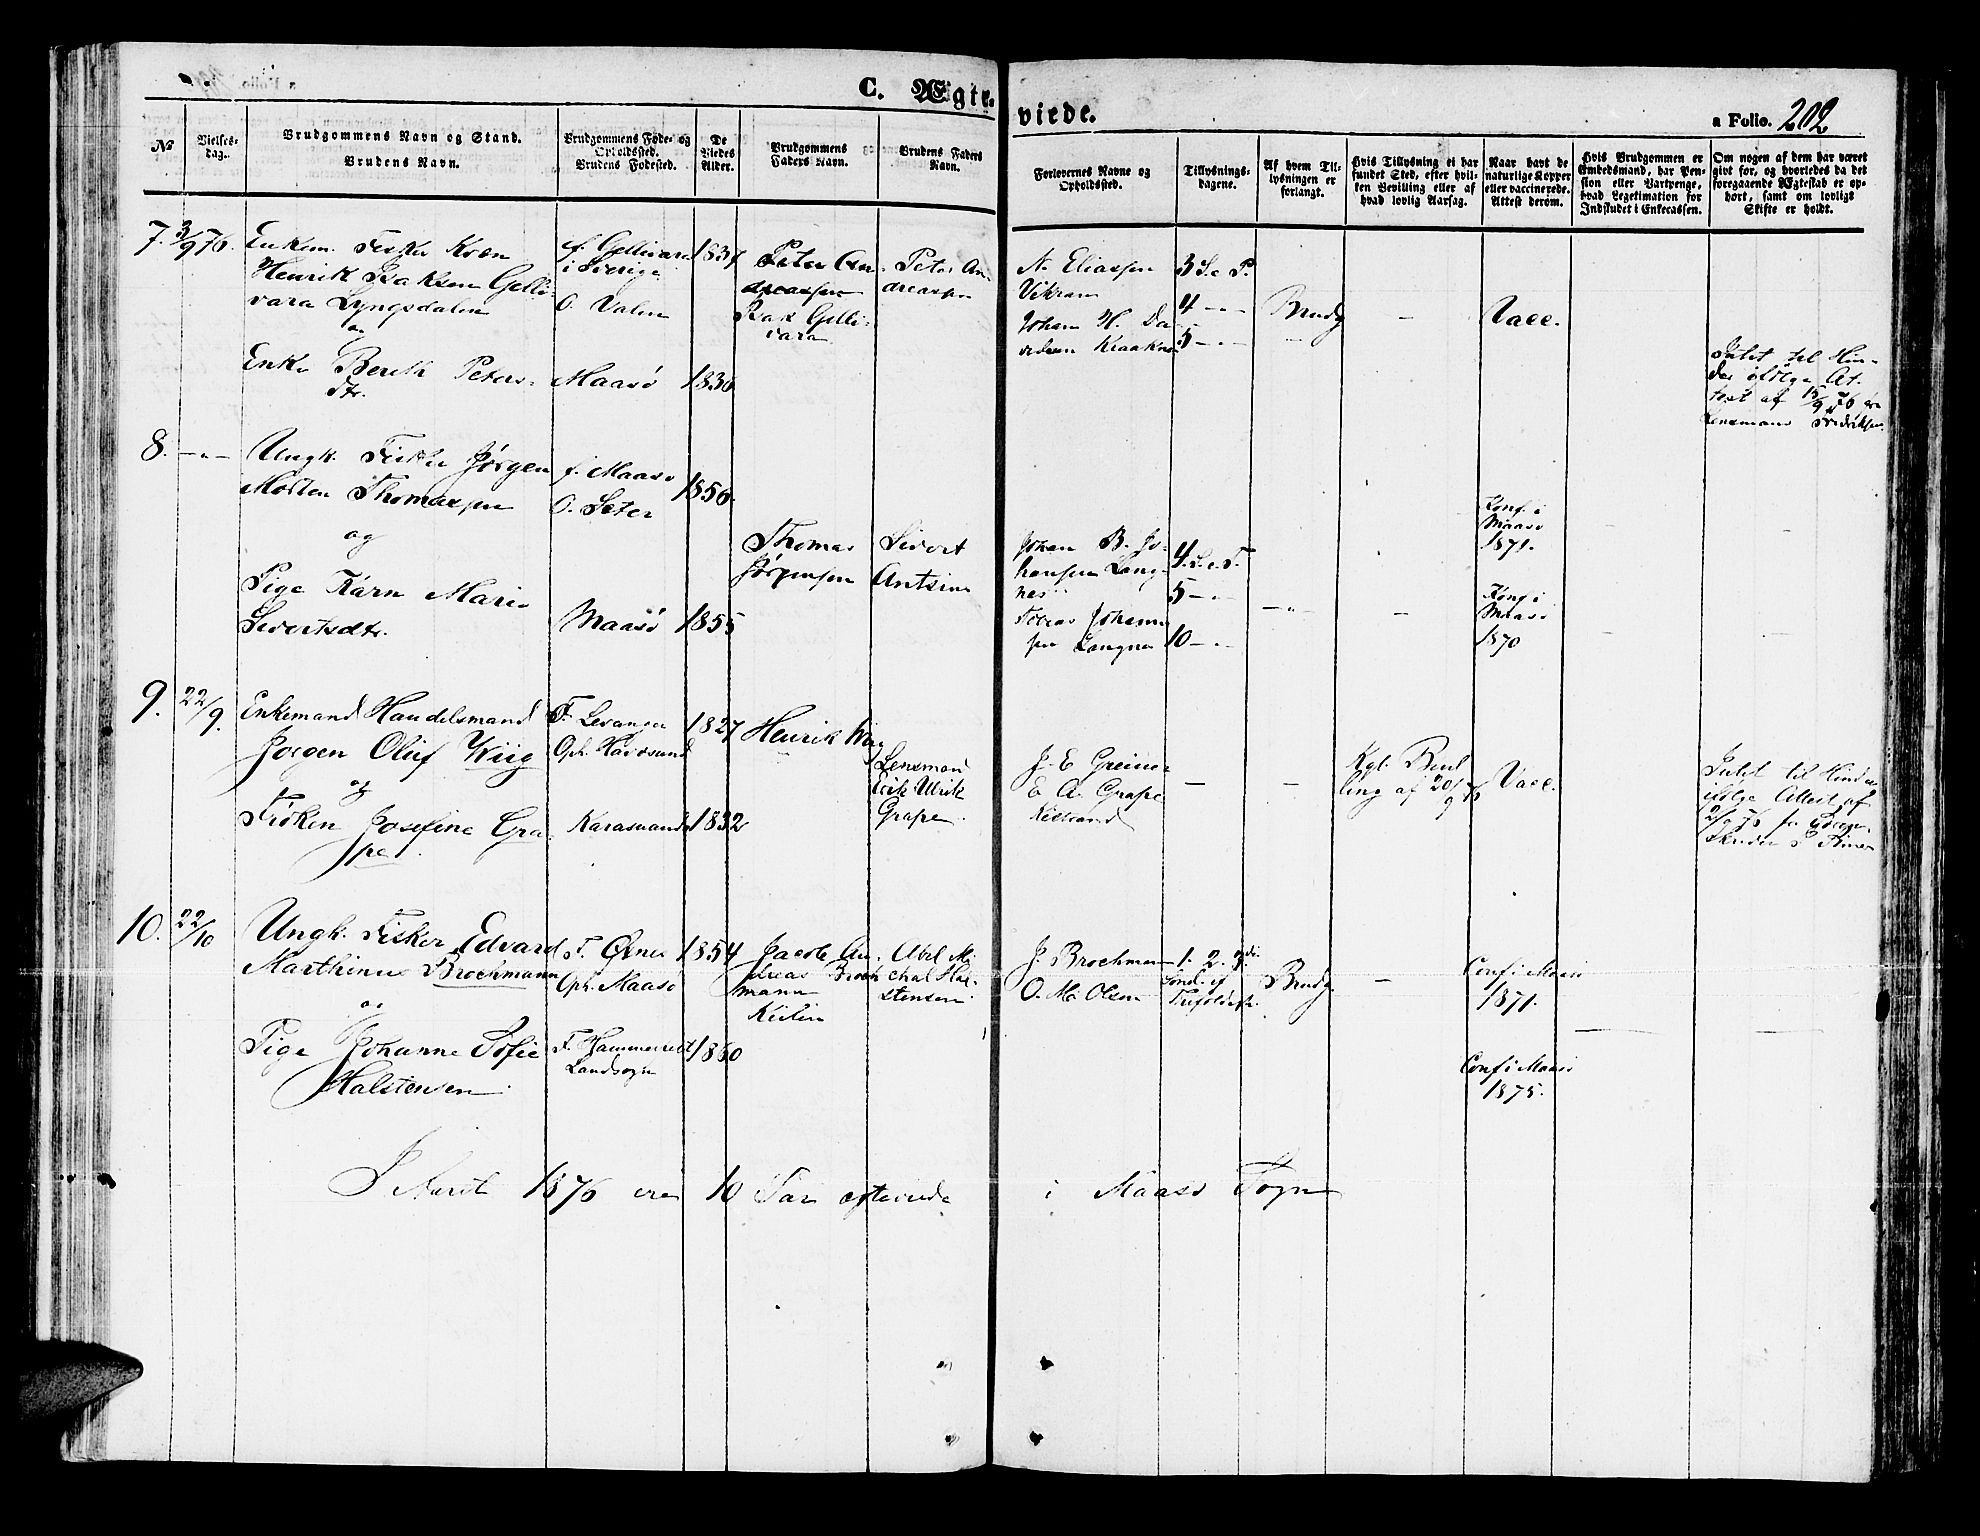 C. Ægte- viede.
a Folio. 202
No
Vielses-
dag.
Brudgommens Navn og Stand.
Brudens Navn.
Brudgommens Føde- og
Opholdssted.
Brudens Fødested.
De
Viedes
Alder.
Brudgommens
Faders Navn.
Brudens Faders
Navn.
Forlovernes Navne og
Opholdssted.
Tillysnings-
dagene.
Af hvem Til-
lysningen er
forlangt.
Hvis Tillysning ei har
fundet Sted, efter hvil-
ken Bevilling eller af
hvad lovlig Aarsag.
Naar havt de
naturlige Kopper
eller vaccinerede.
Attest derom.
Hvis Brudgommen er
Embedsmand, har Pen-
sion eller Vartpenge,
hvad Legitimation for
Indskudet i Enkecassen.
Om nogen af dem har været
gift før, og hvorledes da det
foregaaende Ægteskab er op-
hørt, samt om lovligt
Skifte er holdt.
7. 3/9 76.
Enkem. Fisker Kvæn
Henrik Isaksen Gelli-
vara Lyngsdalen
og
Enke Berith Peters-
dtr.
f. Gellivara
i Sverige
O. Valen
Maasö
1837
1836
Peter An-
dreassen
Isak Gelli-
vara
Peter An-
dreassen
N. Eliassen
Vikran
Johan H. Da-
3 S. e P.
4 - " -
5 - " -
Brudg
-
Vacc.
Intet til Hin-
der ifölge At-
test af 15/9 76 fra
Lensmand Fredriksen
8. - " -
Ungk. Fisker Jörgen
Morten Thomassen
og
Pige Karn Marie
Sivertsdtr.
f. Maasö
O. Seter
Maasö
1850
1855
Thomas
Jörgensen
Sivert
Antsen
Johan B. Jo-
hansen Lang-
nes
Johannes-
sen Langnes
4. S. e. T.
5 - " -
10 - " -
- " -
-
Konf. i
Maasö
1871.
Konf i
Maasö
1870
-
9. 22/9.
Enkemand Handelsmand
Jörgen Oluf Wiig
og
Fröken Josefine Gra-
pe.
F. Levanger
Oph. Havösund
Karasuando
1827
1832
Henrik Wiig
Lensmand
Erik Ulrik
Grape.
J. E. Greiner
E A. Grape
-
-
Kgl. Bevil-
ling af 20/9 76
Vacc.
Intet til Hinder
ifölge Attest af
10. 22/10
Ungk. Fisker Edvard
Marthinus Brochmann
og
Pige Johanne Sofie
Halstensen.
F. Öxnes
Oph. Maasö
F. Hammerfest
Landsogn
1854
1860
Jacob An-
dreas Broch-
mann
Abel Mi-
chal Hal-
stensen.
J. Brochmann
O. M. Olsen
1. 2. 3die
Sönd. ef
Trefoldigh.
Brudg.
-
Conf i Maasö
1871.
Conf i Maasö
1875.
I Aaret 1876 ere 10 Par egteviede i Maasö Sogn